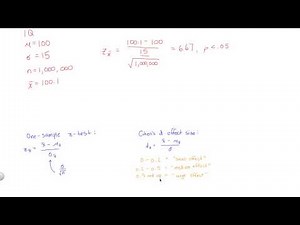 IQ
μ = 100
σ = 15
n = 1,000,000
x̄ = 100.1
z_x̄ = (100.1 - 100) / (15 / √1,000,000) = 6.67, p < .05
One-sample z-test:
z_x̄ = (x̄ - μ_x̄) / σ_x̄
σ / √n
Cohen's d effect size:
= "small effect"
= "medium effect"
= "large effect"